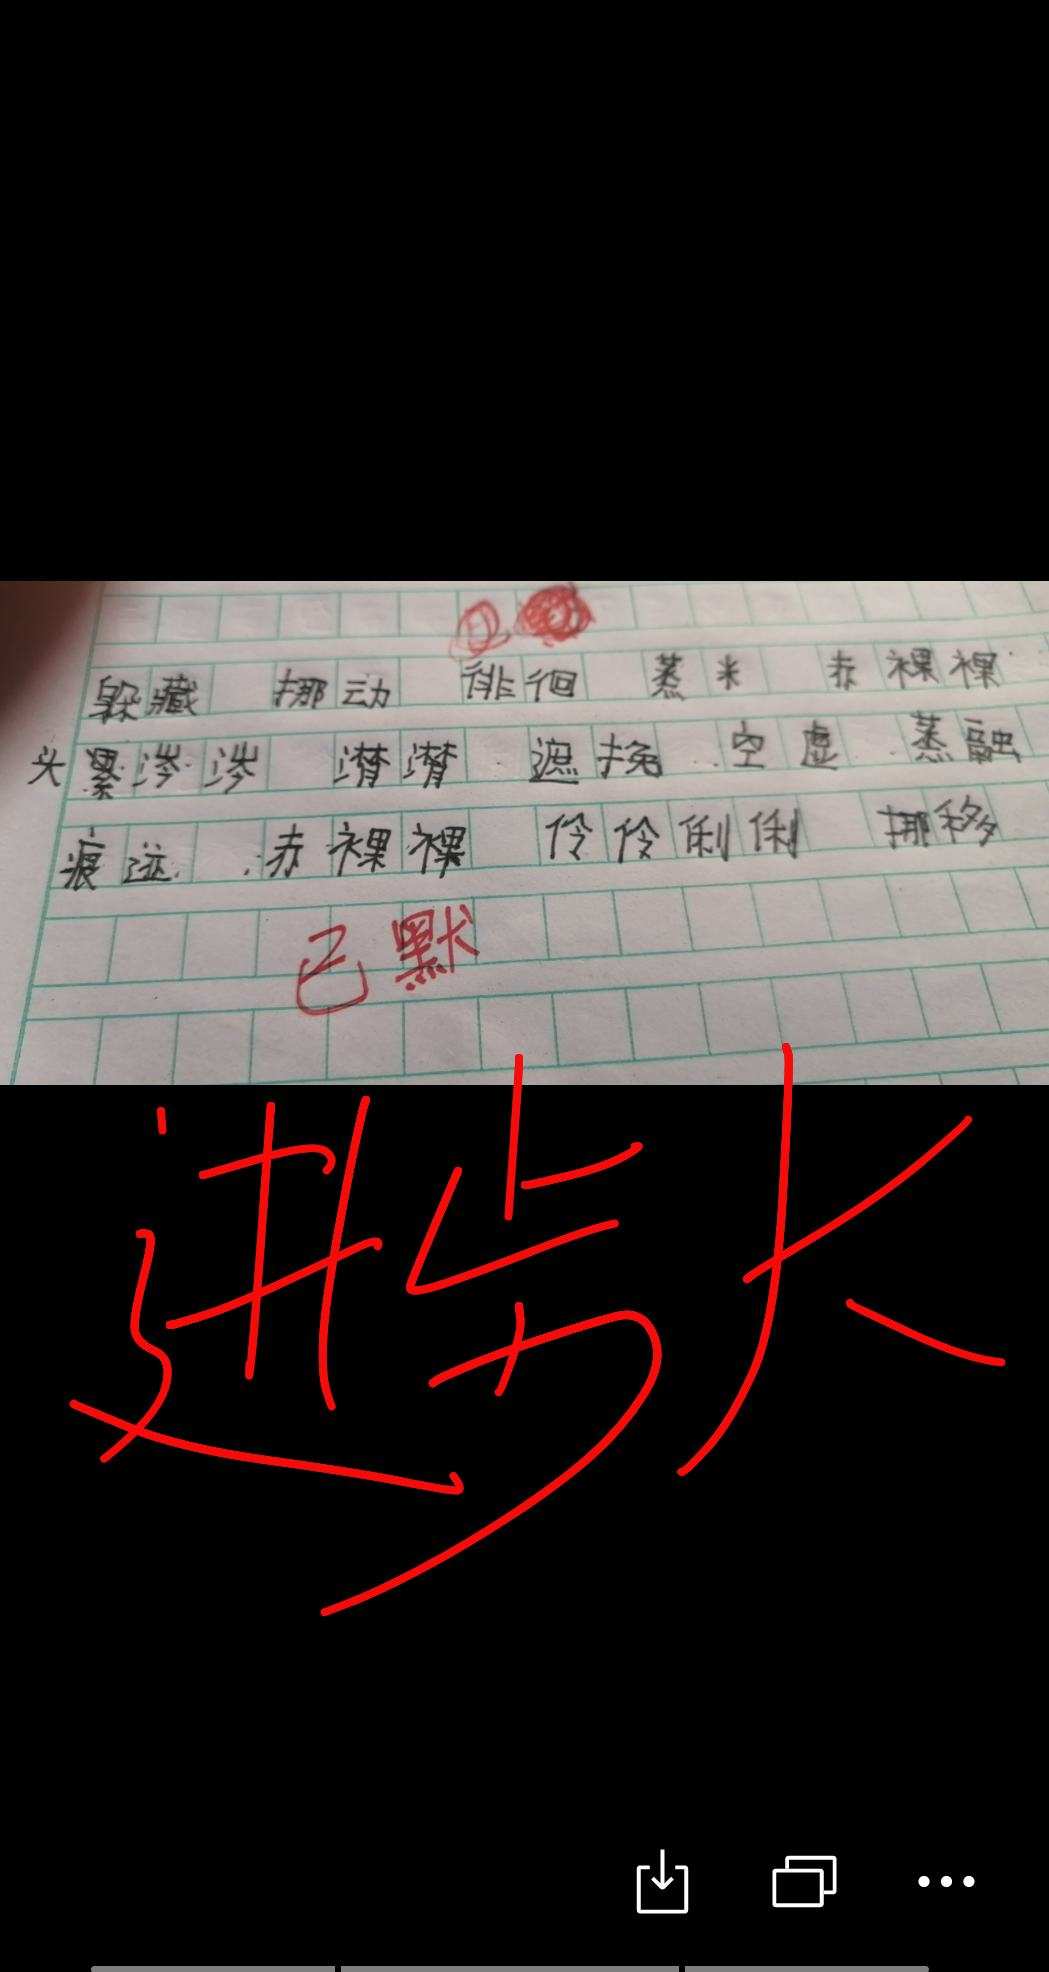 躲藏 挪动 徘徊 蒸米 赤裸裸
头 累涔涔 潸潸 遮挽 空虚 蒸融
痕迹 赤裸裸 伶伶俐俐 挪移
已默
进步大